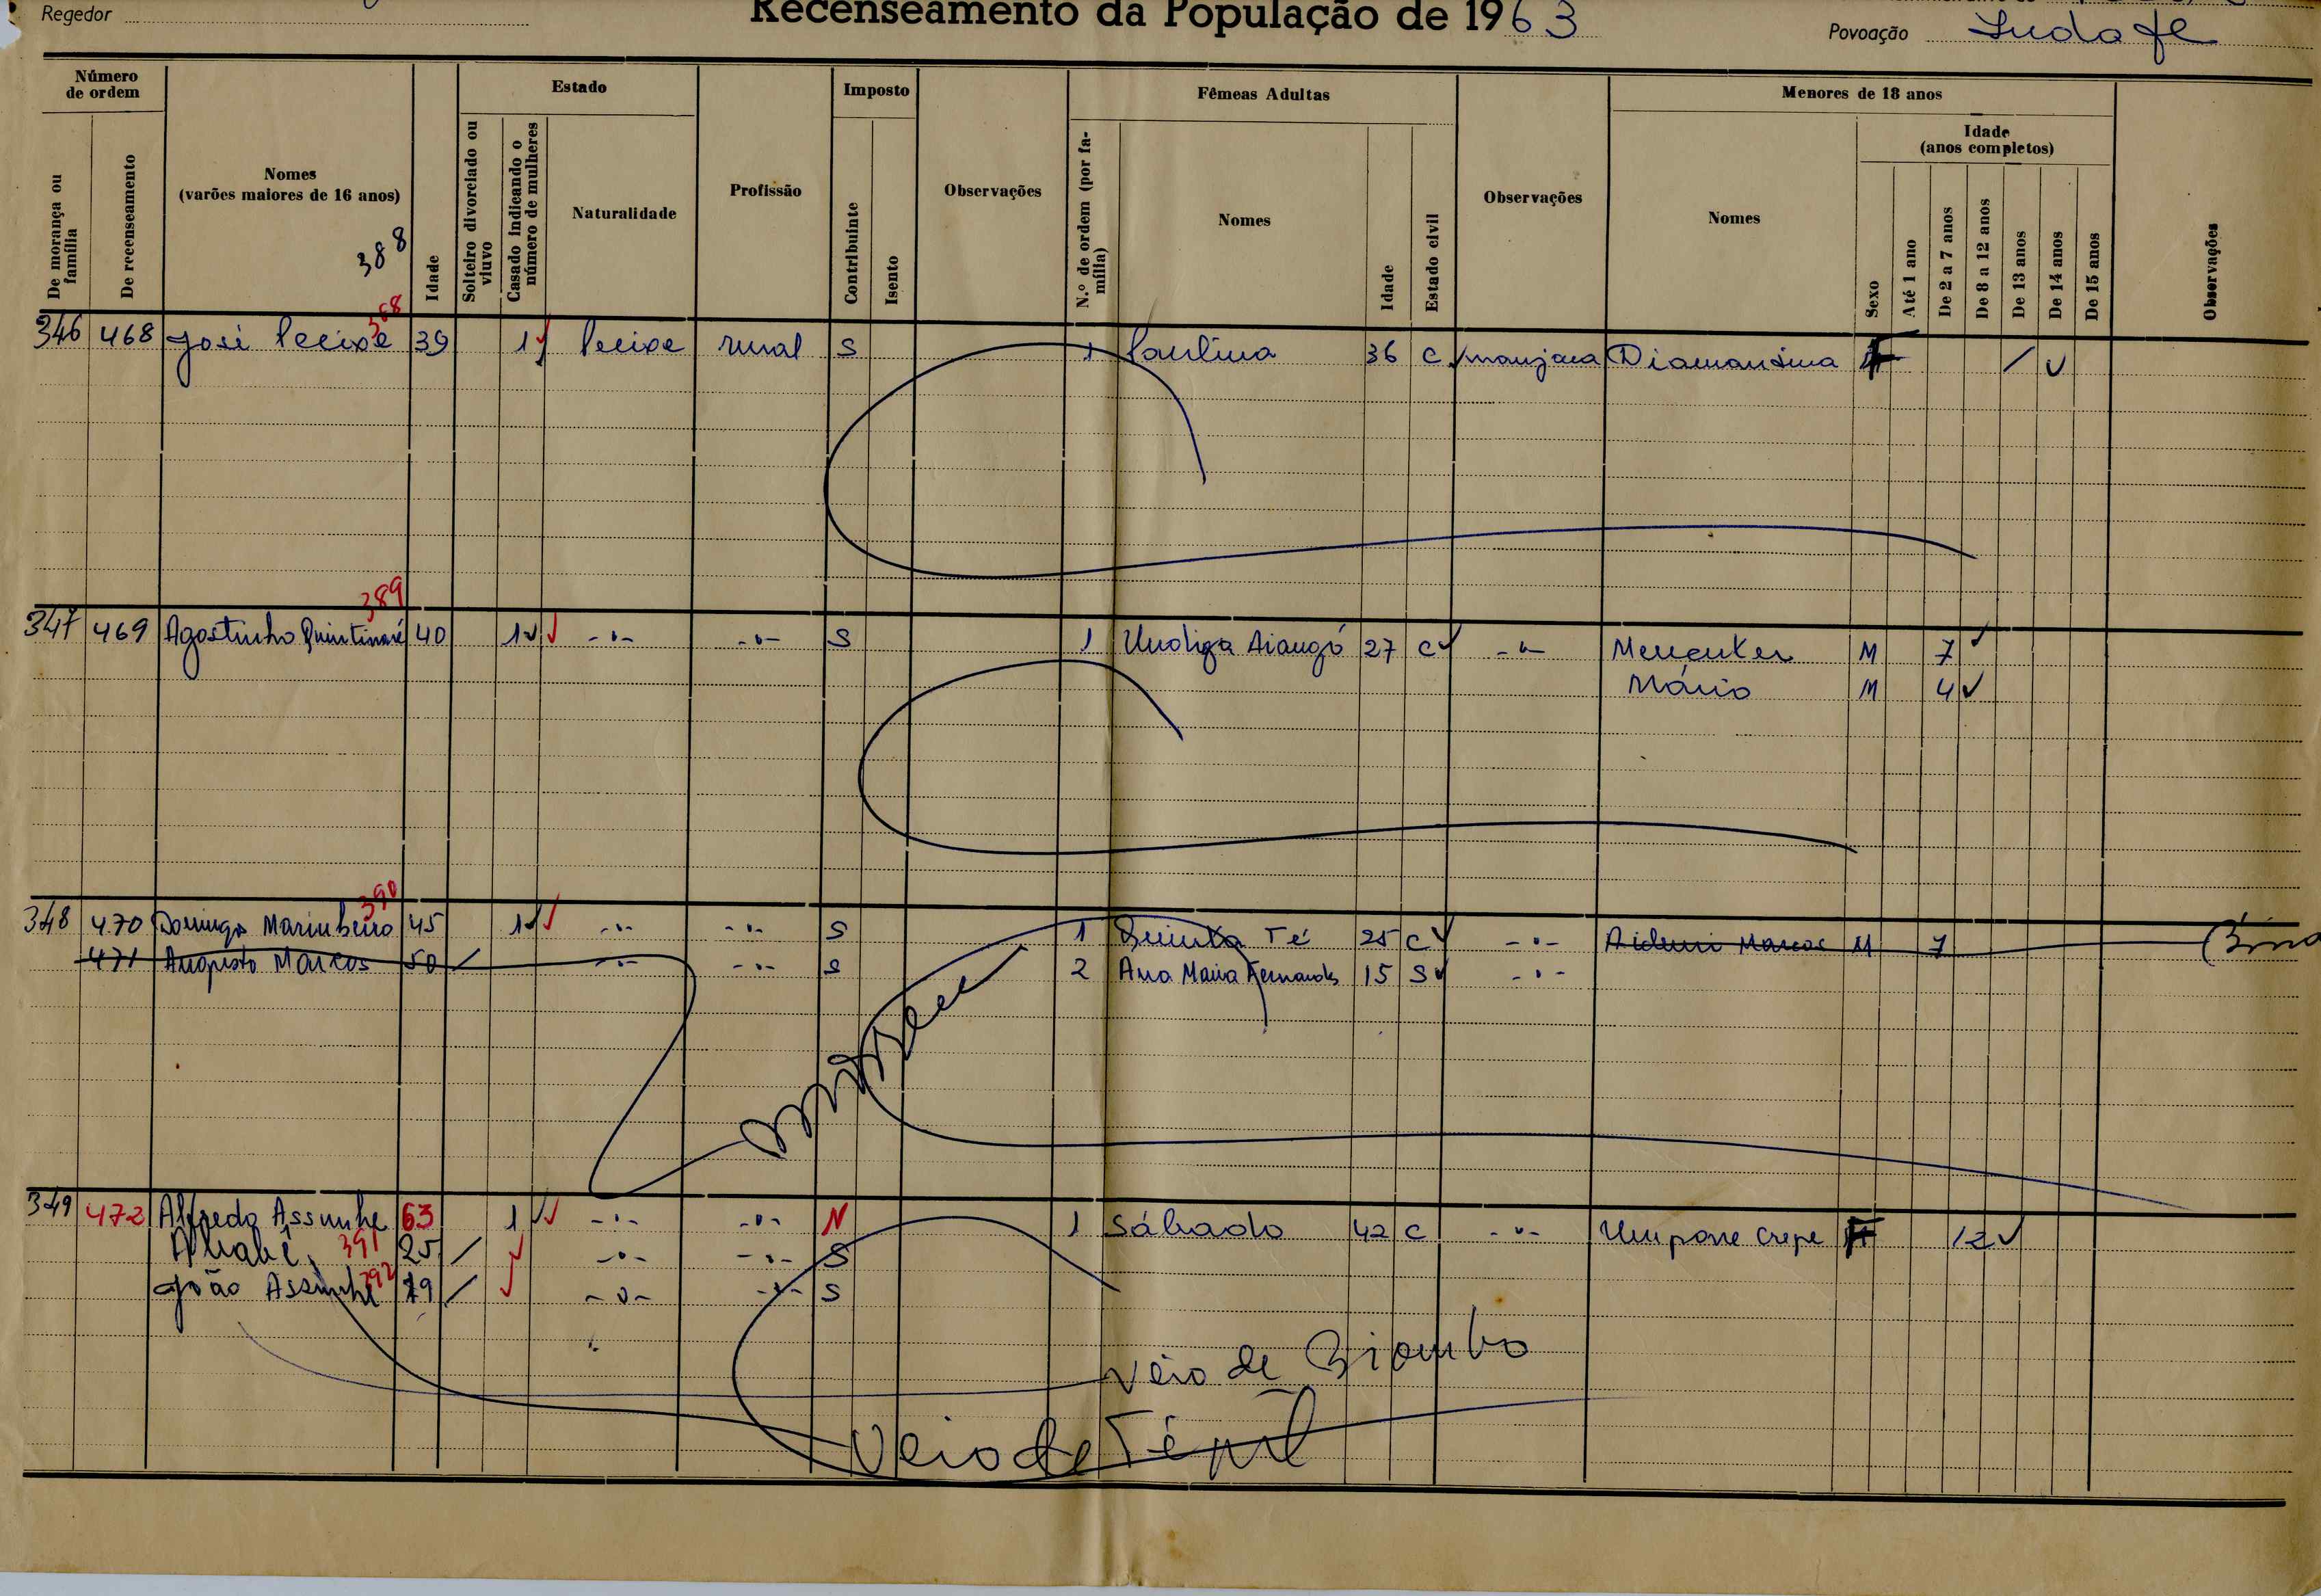 Regedor
Recenseamento da População de 1963
Povoação
Número de ordem
De morança ou família
De recenseamento
Nomes
(varões maiores de 16 anos)
388
Idade
Estado
Solteiro divorciado ou viuvo
Casado indicando o número de mulheres
Naturalidade
Profissão
Imposto
Contribuinte
Isento
Observações
Fêmeas Adultas
N.º de ordem (por família)
Nomes
Idade
Estado civil
Observações
Menores de 18 anos
Nomes
Idade
(anos completos)
Sexo
Até 1 ano
De 2 a 7 anos
De 8 a 12 anos
De 13 anos
De 14 anos
De 15 anos
Observações
346 468 José Pecixe 39 1 Pecixe rural S 1 Paulina 36 C manjaca Diamantina F
389
347 469 Agostinho 40 1 -"- -"- S 1 27 C -"- M 7
Mário M 4
390
348 470 Domingo Marinheiro 45 1 -"- -"- S 1 Quinta Té 25 C -"- Marcos M 7
471 Augusto Marcos 50 -"- -"- S 2 Ana Maria Fernandes 15 S -"-
349 472 Alfredo Assunhe 63 1 -"- -"- N 1 Sábado 42 C -"- F 12
391 25 -"- -"- S
392
João 19 -"- -"- S
Veio de Biombo
Veio de